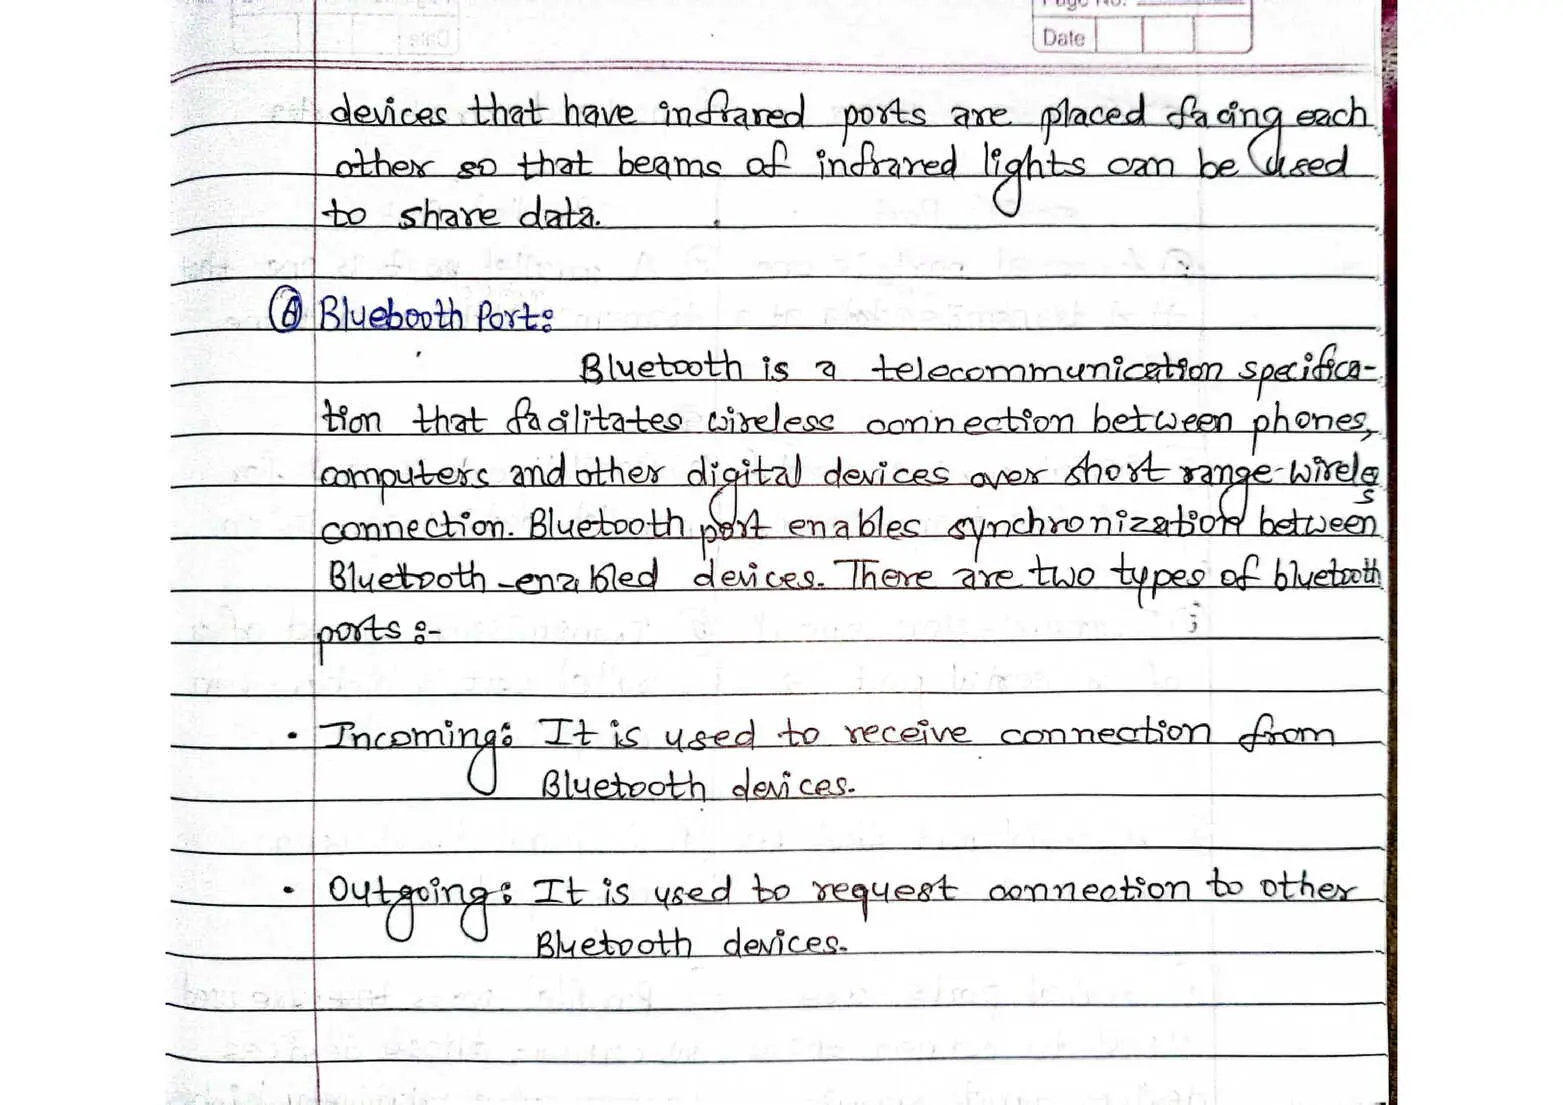 Page No.
Date
devices that have infrared ports are placed facing each
other so that beams of infrared lights can be used
to share data.
⑥ Bluebooth Port:
Bluetooth is a telecommunication specifica-
tion that facilitates wireless connection between phones,
computers and other digital devices over short range-wireles
s
connection. Bluetooth port enables synchronization between
Bluetooth-enabled devices. There are two types of bluetooth
ports :-
• Incoming: It is used to receive connection from
Bluetooth devices.
• Outgoing: It is used to request connection to other
Bluetooth devices.